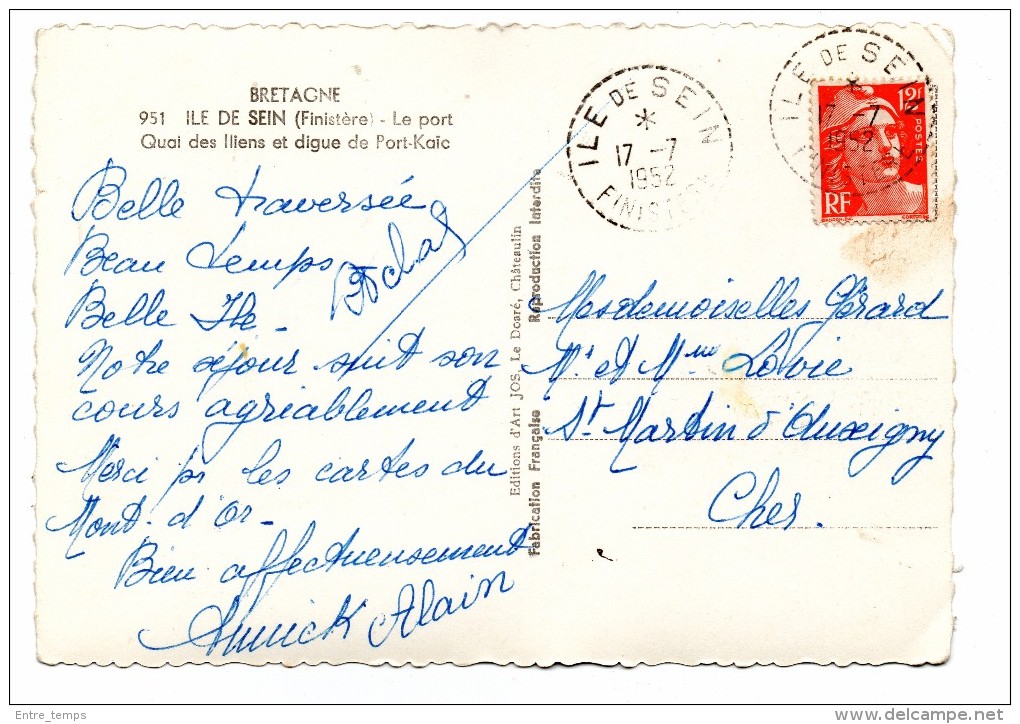 BRETAGNE
951 ILE DE SEIN (Finistère) - Le port
Quai des Iliens et digue de Port-Kaïc
Belle traversée
Beau temps
Belle Ile -
Notre séjour suit son
cours agréablement
Merci pr les cartes du
Mont-d'Or -
Bien affectueusement
Annick Alain
Editions d'Art JOS. Le Doaré, Châteaulin
Fabrication Française Reproduction Interdite
ILE DE SEIN
17 -7
1952
FINISTERE
ILE DE SEIN
17 -7
1952
12F
POSTES
RF
Mesdemoiselles Gérard
Mr et Mme
St Martin d'Auxigny
Cher.
Entre_temps
www.delcampe.net